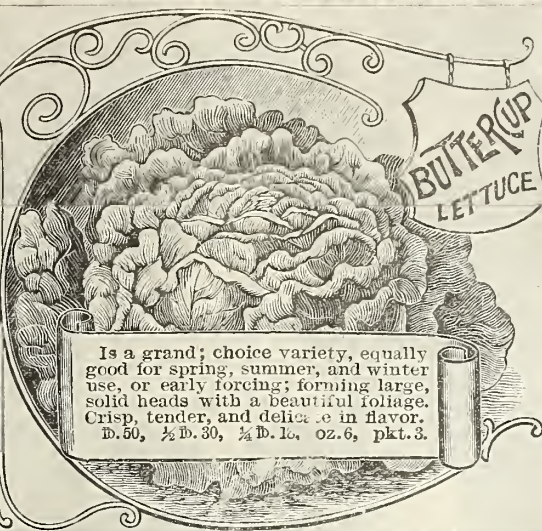 BUTTERCUP
LETTUCE
Is a grand; choice variety, equally
good for spring, summer, and winter
use, or early forcing; forming large,
solid heads with a beautiful foliage.
Crisp, tender, and in flavor.
℔.50, ½℔.30, ¼℔. oz.6, pkt.3.